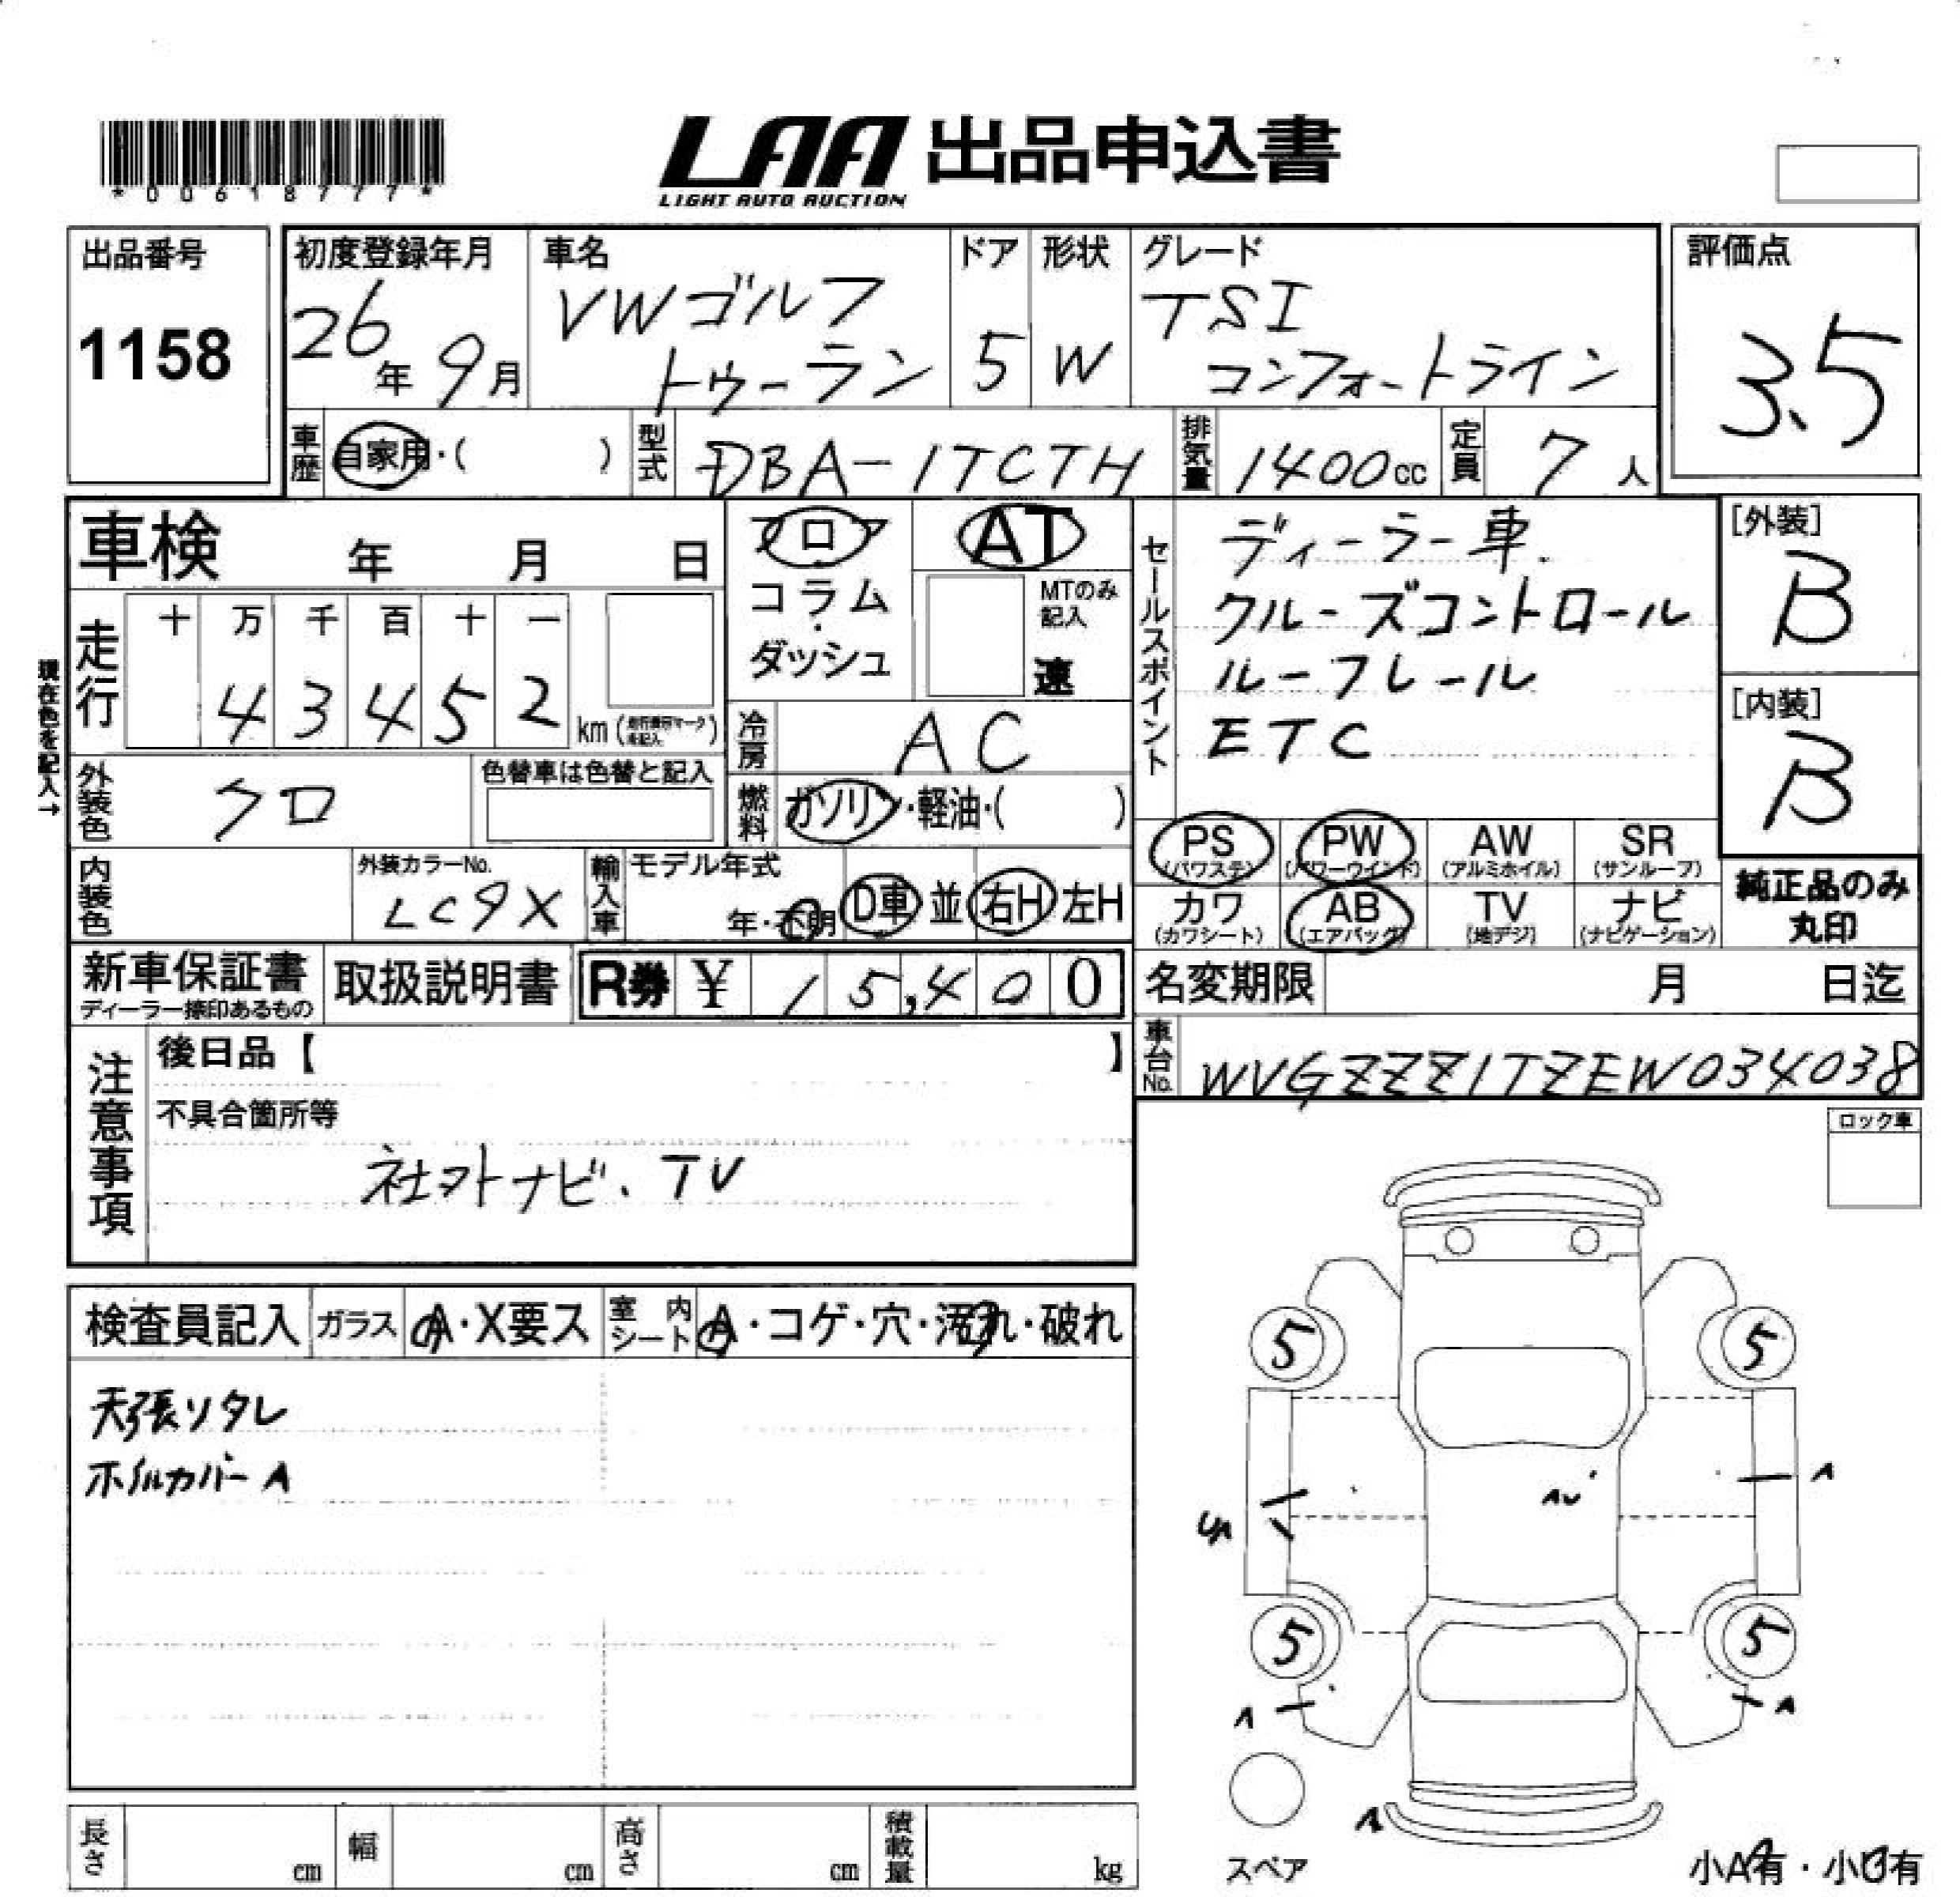 *00618777*
LAA 出品申込書
LIGHT AUTO AUCTION
出品番号
1158
初度登録年月
26年 9月
車名
VWゴルフ
トゥーラン
ドア
5
形状
W
グレード
TSI
コンフォートライン
評価点
3.5
車歴
自家用・( )
型式
DBA-1TCTH
排気量
1400cc
定員
7人
車検 年 月 日
フロア
コラム
・
ダッシュ
AT
MTのみ
記入
速
セールスポイント
ディーラー車.
クルーズコントロール
ルーフレール
ETC
[外装]
B
[内装]
B
現在色を記入→
走行
十 万 千 百 十 一
4 3 4 5 2 km
冷房
AC
外装色
クロ
色替車は色替と記入
燃料
ガソリン・軽油・( )
PS
(パワステ)
PW
(パワーウインド)
AW
(アルミホイル)
SR
(サンルーフ)
内装色
外装カラーNo.
LC9X
輸入車
モデル年式
年・不明
D車 並 右H 左H
カワ
(カワシート)
AB
(エアバッグ)
TV
(地デジ)
ナビ
(ナビゲーション)
純正品のみ
丸印
新車保証書
ディーラー捺印あるもの
取扱説明書
R券 ¥ 15,400
名変期限 月 日迄
車台No.
WVGZZZ1TZEW034038
注意事項
後日品【 】
不具合箇所等
社外ナビ、TV
ロック車
検査員記入
ガラス
A・X要ス
室内シート
A・コゲ・穴・汚れ・破れ
天張リタレ
ホイルカバーA
5
5
A
AU
5
5
A
A
A
スペア
小A有・小U有
長さ cm
幅 cm
高さ cm
積載量 kg